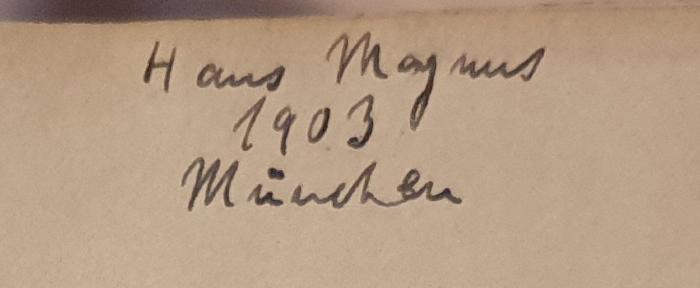 Hans Magnus
1903
München